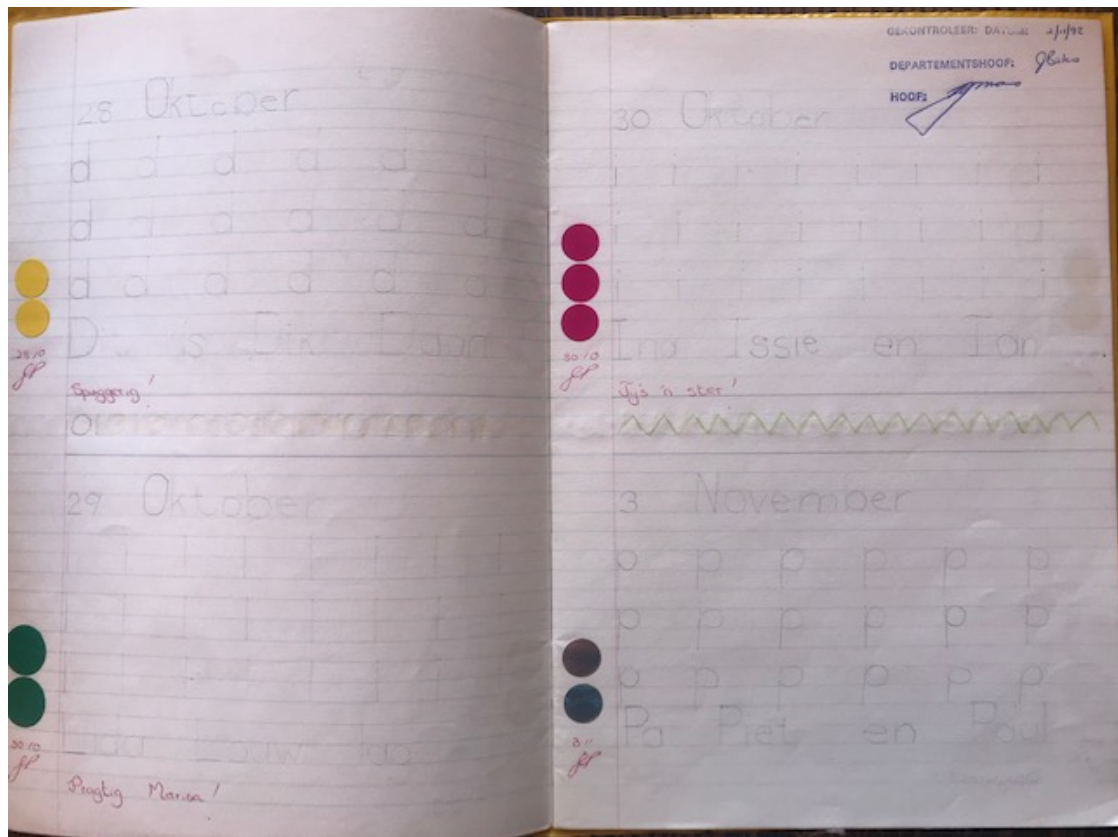 28 Oktober
d d d d d d
d d d d d d
d d d d d d
Dik Daan
28/10
Spoggerig!
29 Oktober
l l l l l l l l
l l l l l l l
l l l l l l l
Louw
30/10
Pragtig Marisa!
GEKONTROLEER: DATUM: 2/11/92
DEPARTEMENTSHOOF:
HOOF:
30 Oktober
i i i i i i i
i i i i i i i
i i i i i i i
Ina Issie en Ian
30/10
Jy's 'n ster!
3 November
p p p p p p
p p p p p p
p p p p p p
Pa Piet en Paul
3/11